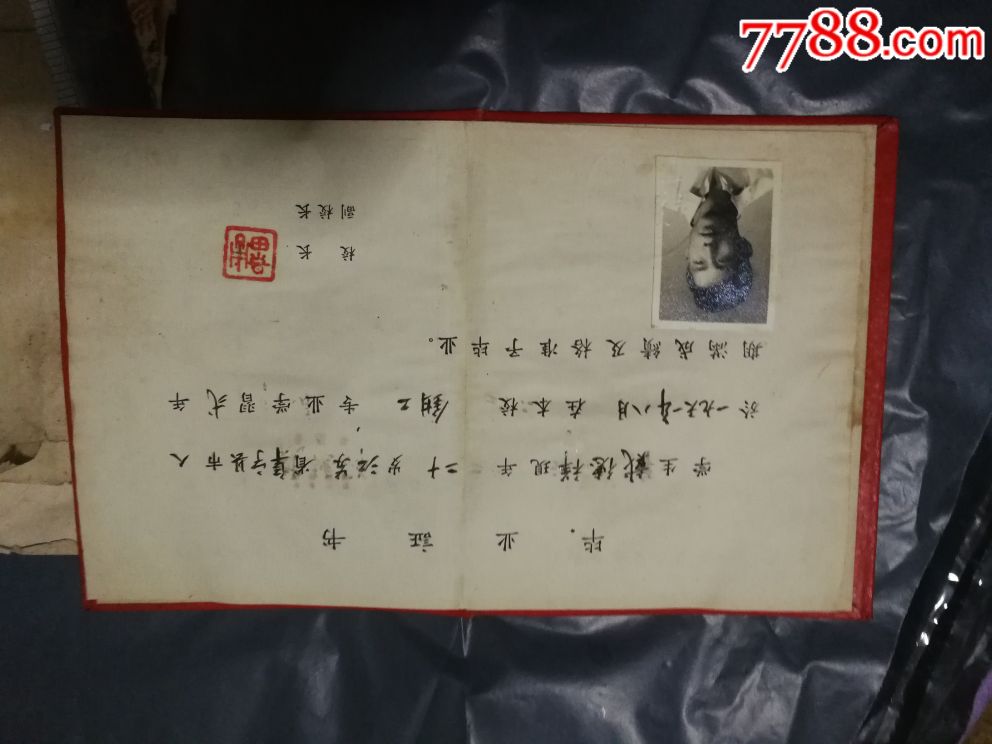 7788.com
毕业证书
学生戴德祥现年二十岁江苏省阜宁县市人
於一九六一年八月在本校鉗工专业学習弍年
期满成績及格准予毕业。
校长
副校长